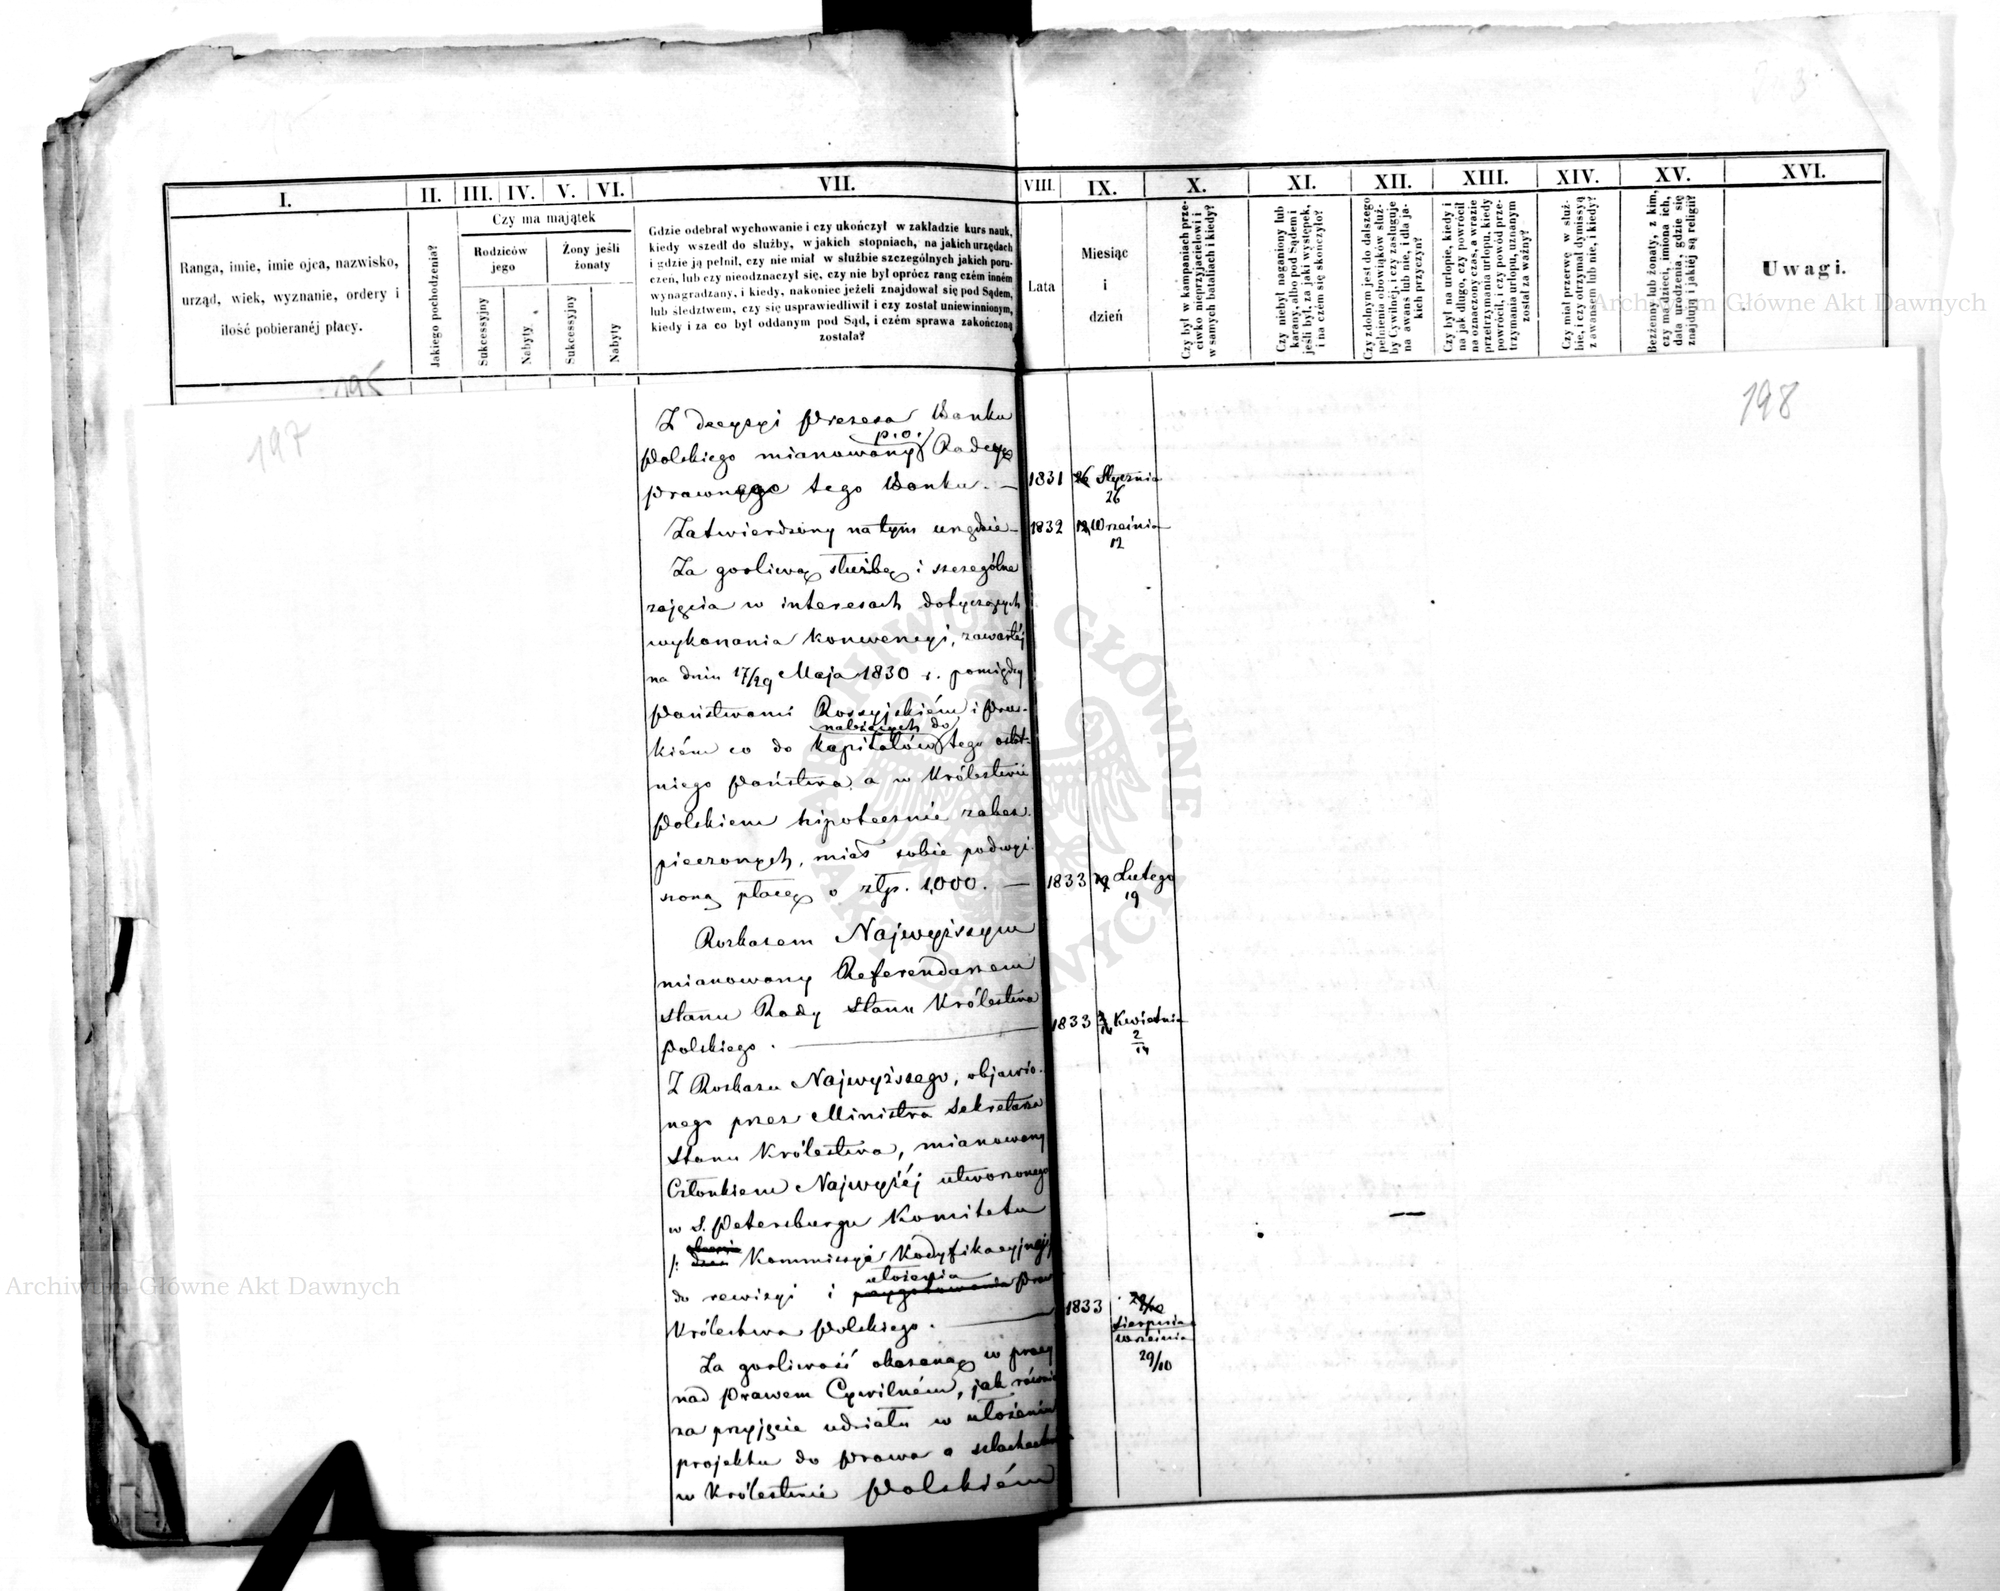 I.
II.
III.
IV.
V.
VI.
VII.
VIII.
IX.
X.
XI.
XII.
XIII.
XIV.
XV.
XVI.
Ranga, imie, imie ojca, nazwisko,
urząd, wiek, wyznanie, ordery i
ilość pobieranéj płacy.
Jakiego pochodzenia?
Czy ma majątek
Rodziców
jego
Żony jeśli
żonaty
Sukcessyjny
Nabyty
Sukcessyjny
Nabyty
Gdzie odebrał wychowanie i czy ukończył w zakładzie kurs nauk,
kiedy wszedł do służby, w jakich stopniach, na jakich urzędach
i gdzie ją pełnił, czy nie miał w służbie szczególnych jakich poru-
czeń, lub czy nieodznaczył się, czy nie był oprócz rang czém inném
wynagradzany, i kiedy, nakoniec jeżeli znajdował się pod Sądem,
lub śledztwem, czy się usprawiedliwił i czy został uniewinnionym,
kiedy i za co był oddanym pod Sąd, i czém sprawa zakończoną
została?
Lata
Miesiąc
i
dzień
Czy był w kampaniach prze-
ciwko nieprzyjacielowi i
w samych bataliach i kiedy?
Czy niebył naganiony lub
karany, albo pod Sądem i
jeśli był, za jaki występek,
i na czem się skończyło?
Czy zdolnym jest do dalszego
pełnienia obowiązków służ-
by Cywilnej, i czy zasługuje
na awans lub nie, i dla ja-
kich przyczyn?
Czy był na urlopie, kiedy i
na jak długo, czy powrócił
na oznaczony czas, a w razie
przetrzymania urlopu, kiedy
powrócił, i czy powód prze-
trzymania urlopu, uznanym
został za ważny?
Czy miał przerwę w służ-
bie, i czy otrzymał dymissyą
z awansem lub nie, i kiedy?
Bezżenny lub żonaty, z kim,
czy ma dzieci, imiona ich,
data urodzenia, gdzie się
znajdują i jakiéj są religii?
Uwagi.
195
197
198
Z decyzyi Prezesa Banku
p.o.
Polskiego mianowany Radcy
Prawnego tego Banku. — 1831 26 Stycznia
26
Zatwierdzony na tym urzędzie — 1832 12 Września
12
Za gorliwą służbę i szczególne
zajęcia w interesach dotyczących
wykonania Konwencyi, zawartéj
na dniu 17/29 Maja 1830 r. pomiędzy
Państwami Rossyjskiém i Prus-
należących do
kiém co do kapitałów tego ostat-
niego Państwa a w Królestwie
Polskiem hipotecznie zabez-
pieczonych, miał sobie podwyż-
szoną płacę o złp. 1,000. — 1833 19 Lutego
19
Rozkazem Najwyższym
mianowany Referendarzem
Stanu Rady Stanu Królestwa
1833 Kwietnia
Polskiego.
2
14
Z Rozkazu Najwyższego, objawio-
nego przez Ministra Sekretarza
Stanu Królestwa, mianowany
Członkiem Najwyżéj utworzonego
w S. Petersburgu Komitetu
obecnie
/: Kommissyi Kodyfikacyjnej
ułożenia
do rewizyi i przygotowania Praw
Królestwa Polskiego. — 1833 29/10
Sierpnia
Września
29/10
Za gorliwość okazaną w pracy
nad Prawem Cywilném, jak równie
za przyjęcie udziału w ułożeniu
projektu do Prawa o szlachectwie
w Królestwie Polskiém
Archiwum Główne Akt Dawnych
Archiwum Główne Akt Dawnych
ARCHIWUM GŁÓWNE AKT DAWNYCH